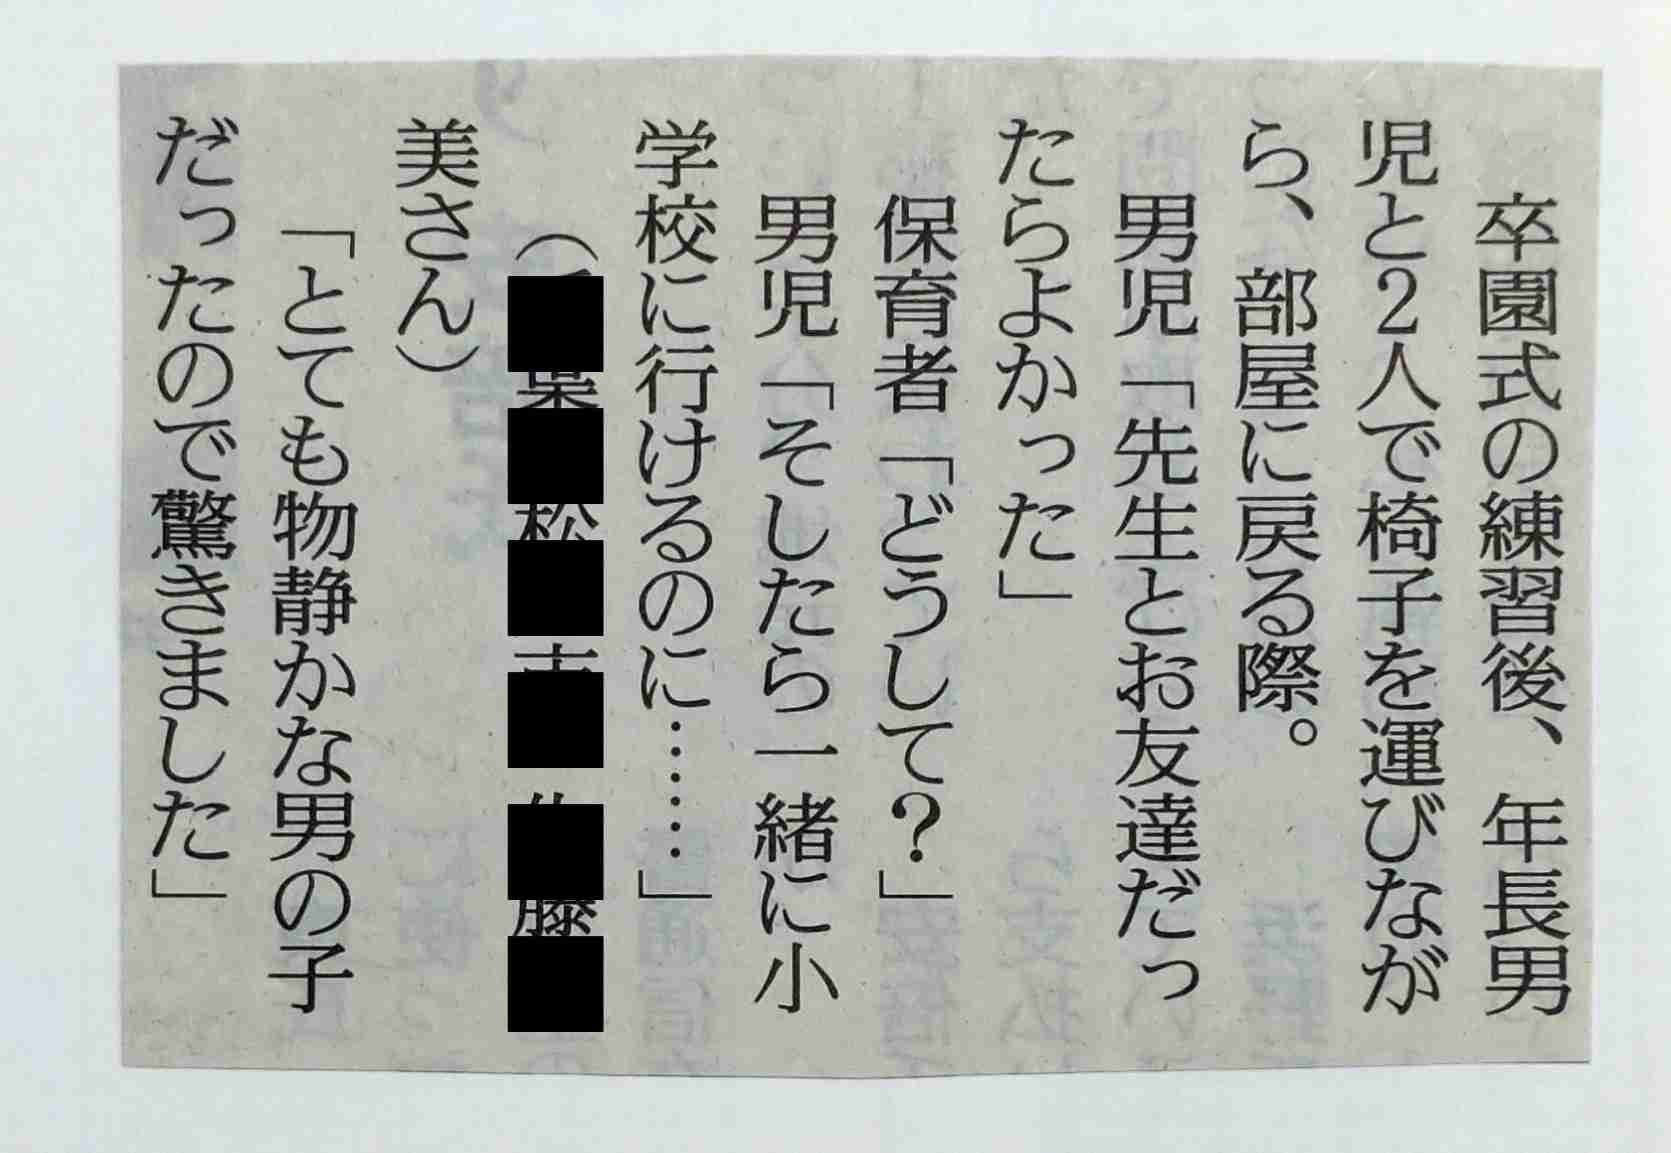 卒園式の練習後、年長男
児と2人で椅子を運びなが
ら、部屋に戻る際。
男児「先生とお友達だっ
たらよかった」
保育者「どうして?」
男児「そしたら一緒に小
学校に行けるのに……」
（
美さん）
「とても物静かな男の子
だったので驚きました」